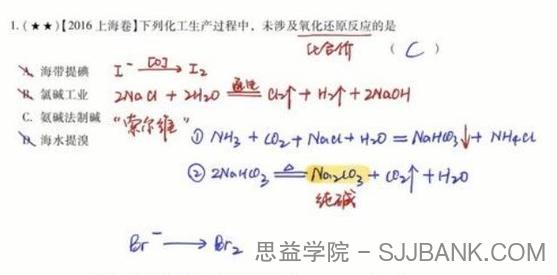 1.(★★)【2016 上海卷】下列化工生产过程中，未涉及氧化还原反应的是
化合价 ( C )
A. 海带提碘 I⁻ —[O]→ I₂
B. 氯碱工业 2NaCl + 2H₂O =通电= Cl₂↑ + H₂↑ + 2NaOH
C. 氨碱法制碱 "索尔维" ① NH₃ + CO₂ + NaCl + H₂O = NaHCO₃↓ + NH₄Cl
D. 海水提溴
② 2NaHCO₃ =△= Na₂CO₃ + CO₂↑ + H₂O
纯碱
Br⁻ → Br₂
思益学院 - SJJBANK.COM